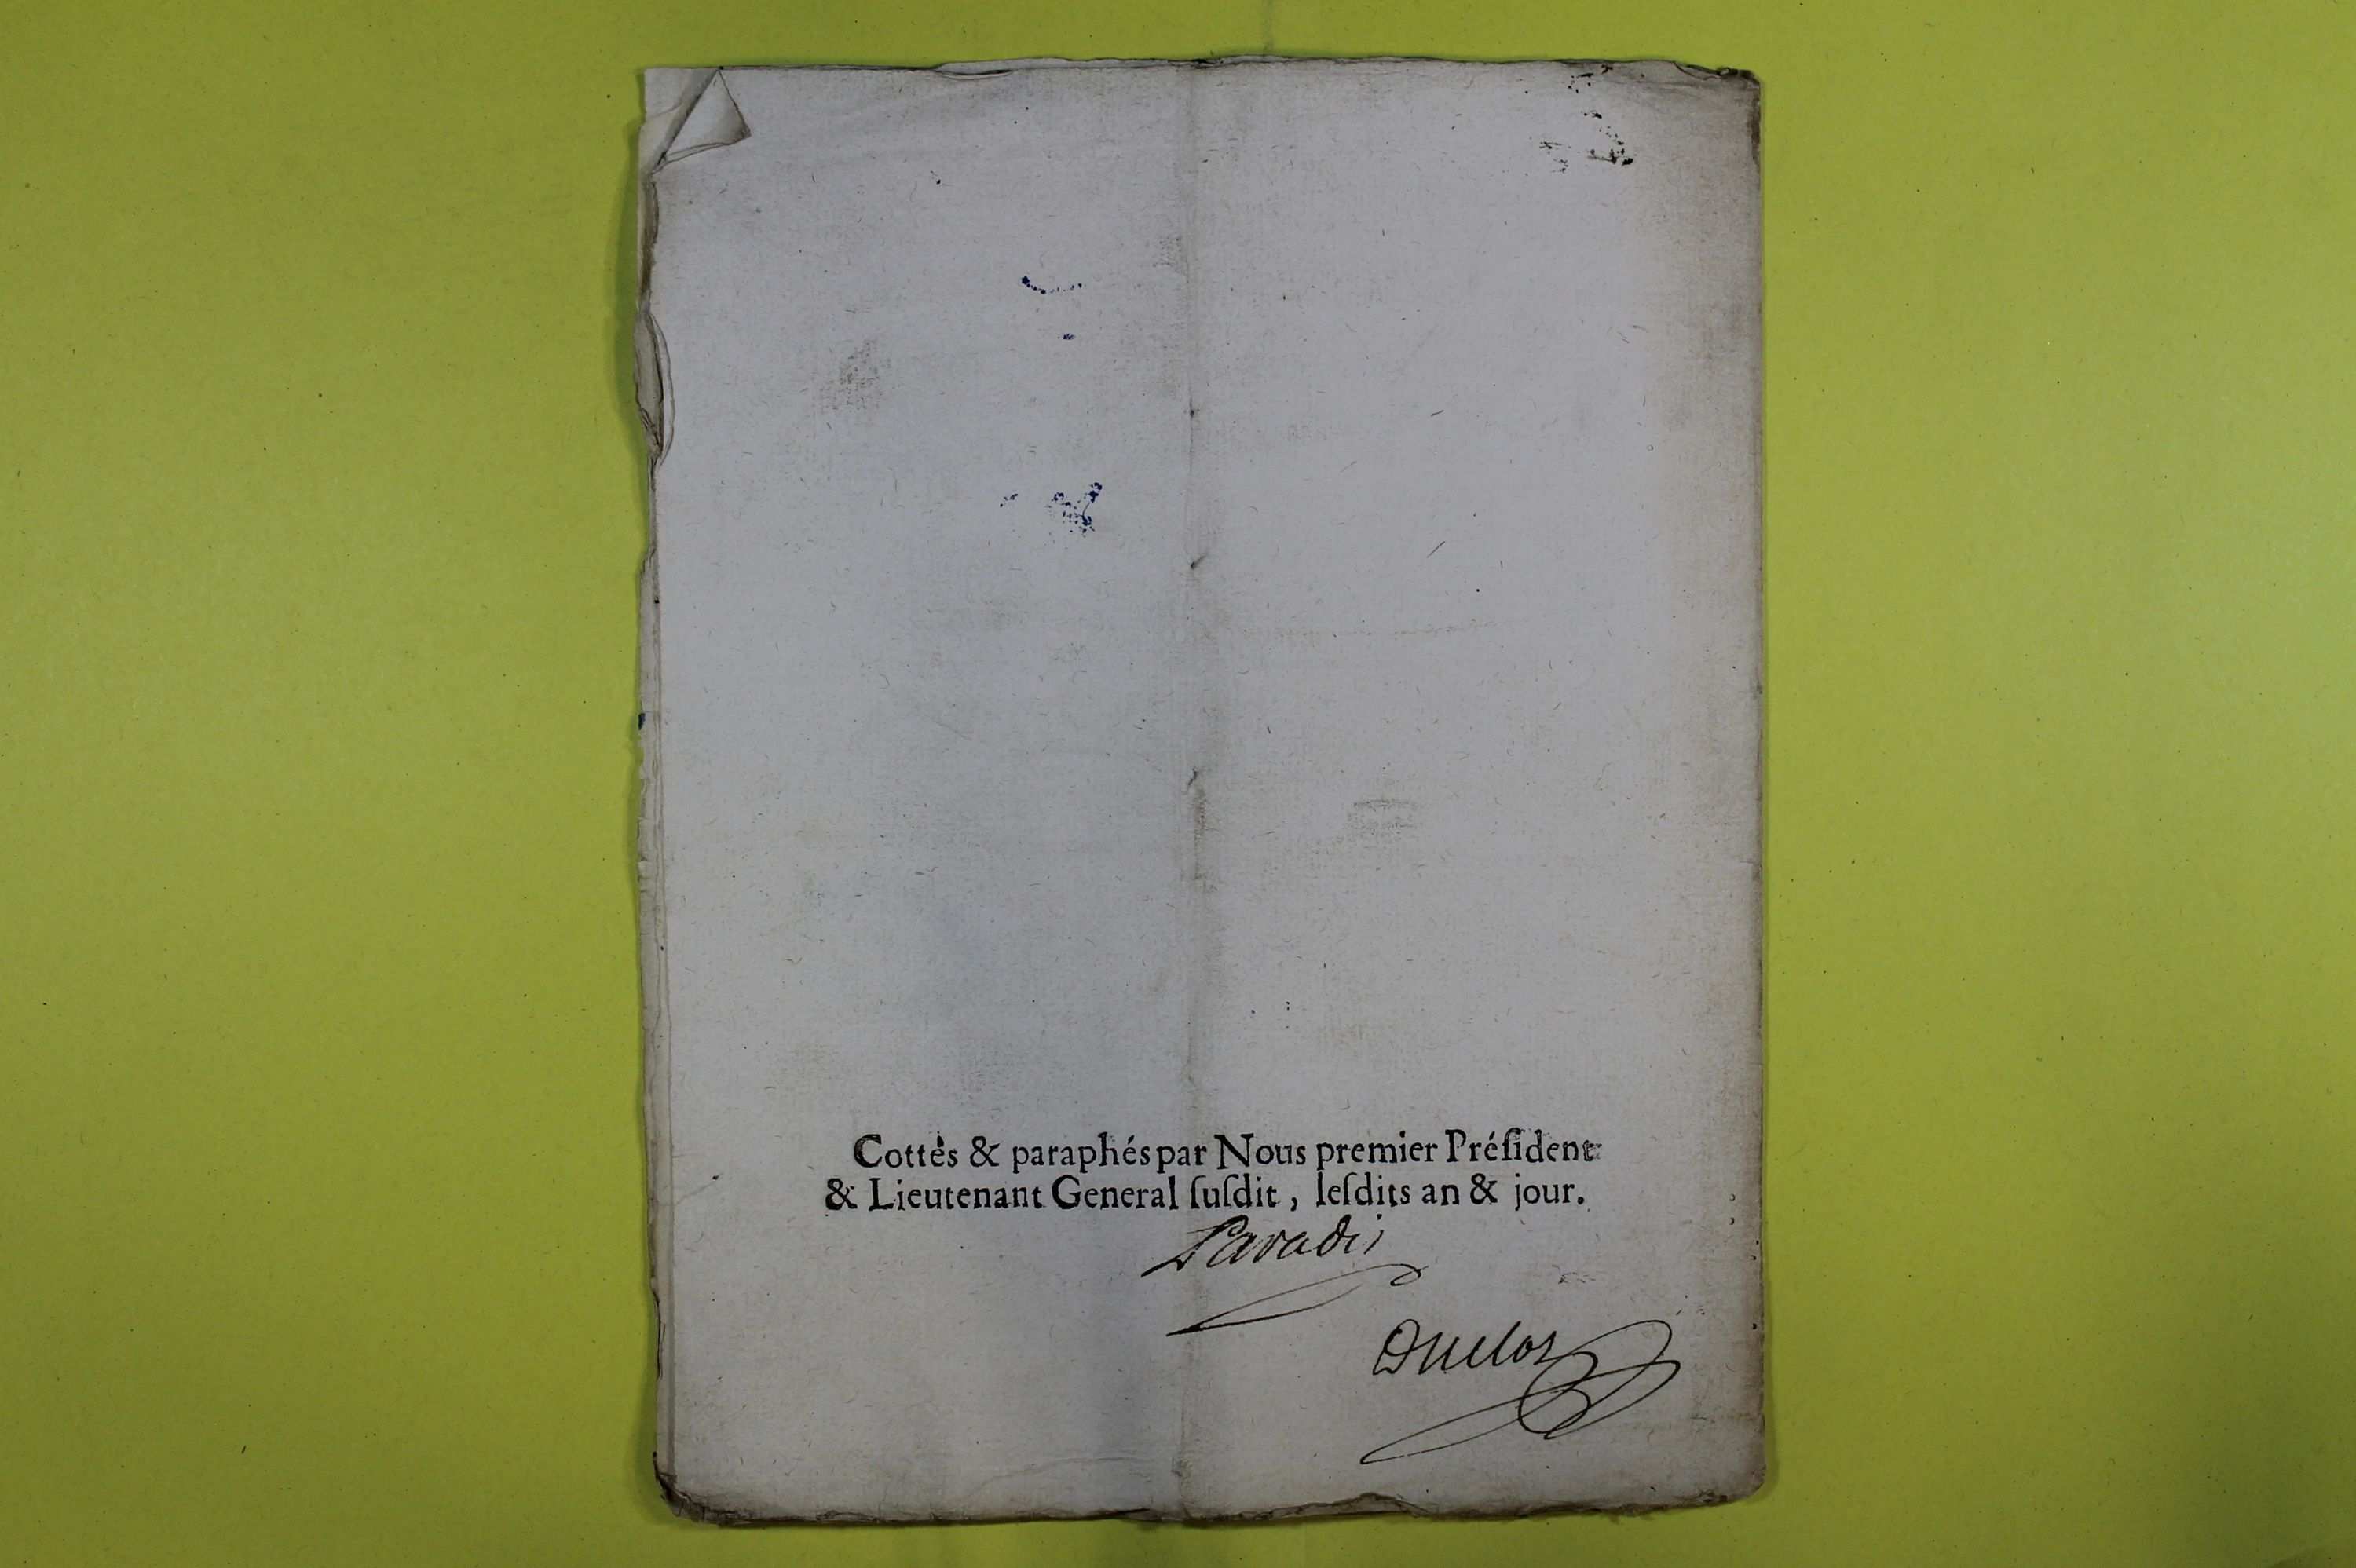 Cottés & paraphés par Nous premier Préſident
& Lieutenant General ſuſdit, leſdits an & jour.
Paradis
Duclos